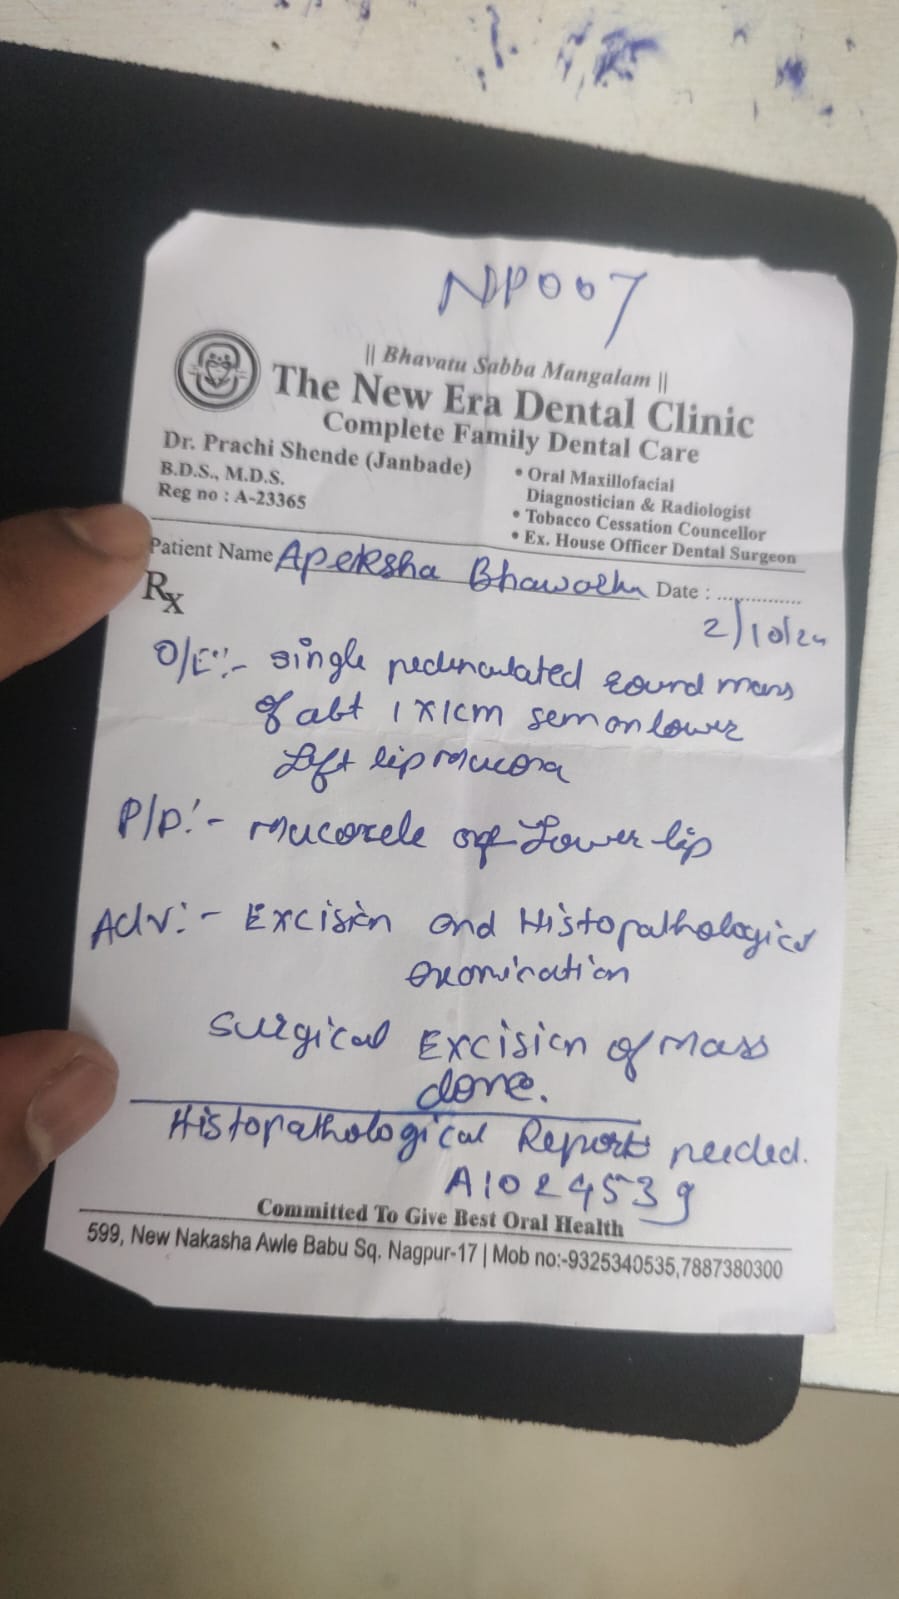 NP007
|| Bhavatu Sabba Mangalam ||
The New Era Dental Clinic
Complete Family Dental Care
Dr. Prachi Shende (Janbade)
B.D.S., M.D.S.
Reg no : A-23365
• Oral Maxillofacial
Diagnostician & Radiologist
• Tobacco Cessation Councellor
• Ex. House Officer Dental Surgeon
Patient Name Apeksha Date : ...............
2/10/24
Rx
O/E:- single pedunculated round mass
of abt 1x1cm seen on lower
Left lip mucosa
P/D:- Mucocele of Lower lip
Adv:- Excision and Histopathological
examination
Surgical Excision of Mass
done.
Histopathological Reports needed.
A1024539
Committed To Give Best Oral Health
599, New Nakasha Awle Babu Sq. Nagpur-17 | Mob no:-9325340535,7887380300